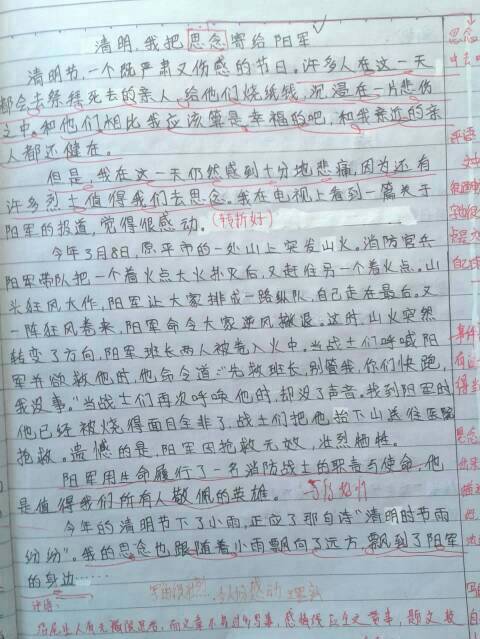 清明,我把思念寄给阳军
清明节,一个既严肃又伤感的节日。许多人在这一天
都会去祭拜死去的亲人,给他们烧纸钱,沉浸在一片悲伤
之中。和他们相比我应该算是幸福的吧,和我亲近的亲
人都还健在。
但是,我在这一天仍然感到十分地悲痛,因为还有
许多烈士值得我们去思念。我在电视上看到一篇关于
阳军的报道,觉得很感动。(转折好)
今年3月8日,原平市的一处山上突发山火。消防官兵
阳军带队把一个着火点大火扑灭后,又赶往另一个着火点。山
头狂风大作,阳军让大家排成一路纵队,自己走在最后。又
一阵狂风卷来,阳军命令大家逆风撤退。这时,山火突然
转变了方向,阳军班长两人被卷入火中。当战士们呼喊阳
军并欲救他时,他命令道:“先救班长,别管我,你们快跑,
我没事。”当战士们再次呼唤他时,却没了声音。找到阳军时
他已经被烧得面目全非了,战士们把他抬下山送往医院
抢救。遗憾的是,阳军因抢救无效,壮烈牺牲。
阳军用生命履行了一名消防战士的职责与使命,他
是值得我们所有人敬佩的英雄。
今年的清明节下了小雨,正应了那句诗“清明时节雨
纷纷”。我的思念也跟随着小雨飘向了远方,飘到了阳军
的身边……
评语:
思念